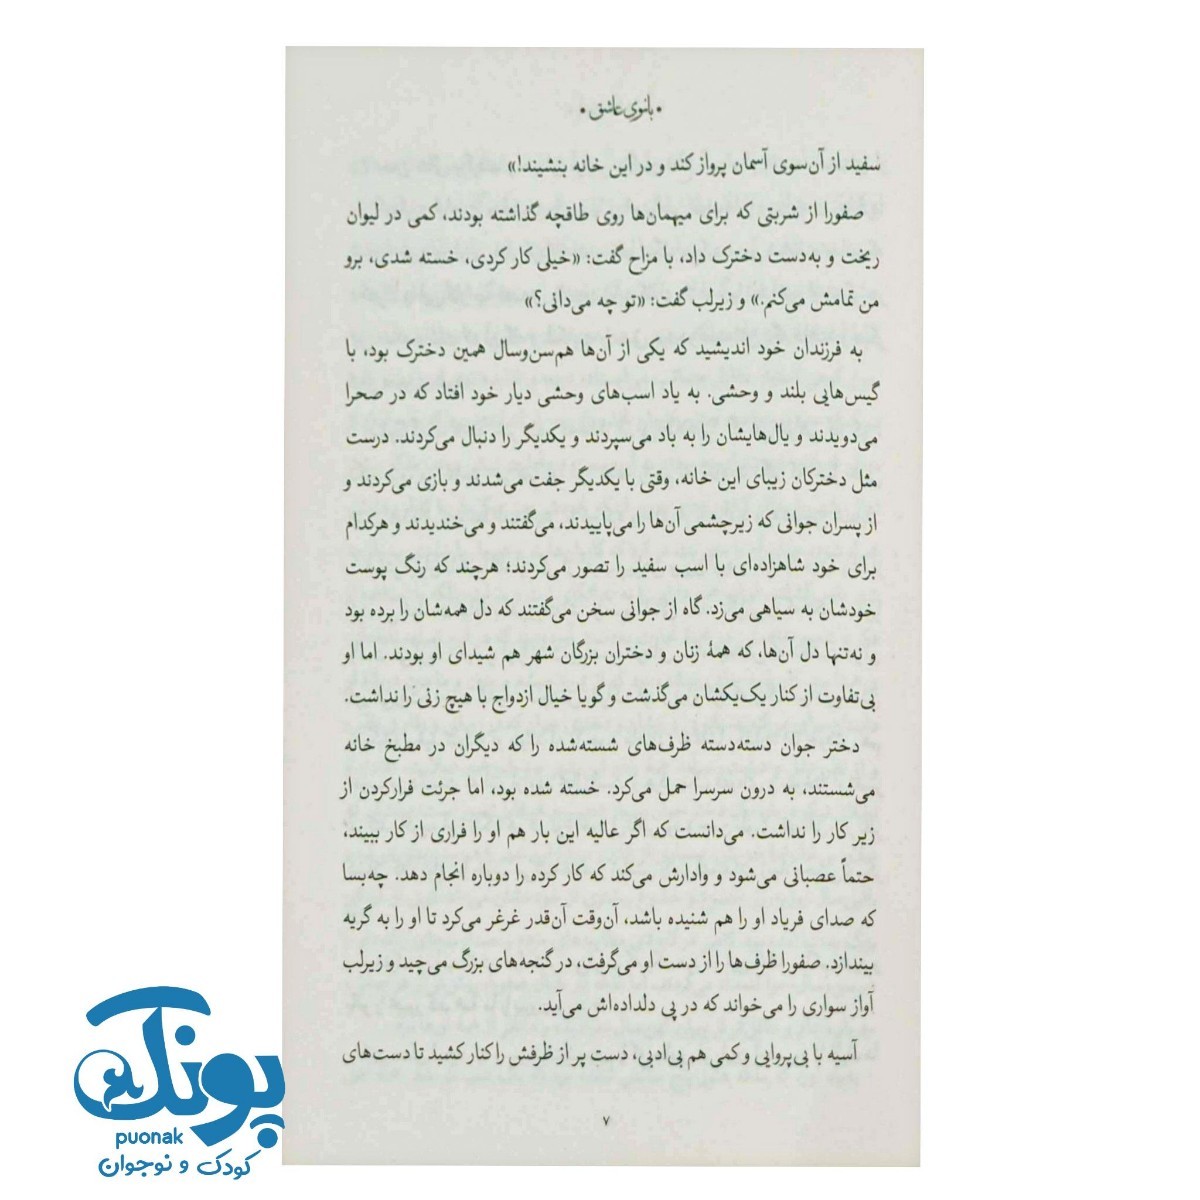 • بانوی عاشق •
سفید از آن‌سوی آسمان پرواز کند و در این خانه بنشیند!»
صفورا از شربتی که برای میهمان‌ها روی طاقچه گذاشته بودند، کمی در لیوان
ریخت و به‌دست دخترک داد، با مزاح گفت: «خیلی کار کردی، خسته شدی، برو
من تمامش می‌کنم.» و زیرلب گفت: «تو چه می‌دانی؟»
به فرزندان خود اندیشید که یکی از آن‌ها هم‌سن‌وسال همین دخترک بود، با
گیس‌هایی بلند و وحشی. به یاد اسب‌های وحشی دیار خود افتاد که در صحرا
می‌دویدند و یال‌هایشان را به باد می‌سپردند و یکدیگر را دنبال می‌کردند. درست
مثل دخترکان زیبای این خانه، وقتی با یکدیگر جفت می‌شدند و بازی می‌کردند و
از پسران جوانی که زیرچشمی آن‌ها را می‌پاییدند، می‌گفتند و می‌خندیدند و هرکدام
برای خود شاهزاده‌ای با اسب سفید را تصور می‌کردند؛ هرچند که رنگ پوست
خودشان به سیاهی می‌زد. گاه از جوانی سخن می‌گفتند که دل همه‌شان را برده بود
و نه‌تنها دل آن‌ها، که همهٔ زنان و دختران بزرگان شهر هم شیدای او بودند. اما او
بی‌تفاوت از کنار یک‌یکشان می‌گذشت و گویا خیال ازدواج با هیچ زنی را نداشت.
دختر جوان دسته‌دسته ظرف‌های شسته‌شده را که دیگران در مطبخ خانه
می‌شستند، به درون سرسرا حمل می‌کرد. خسته شده بود، اما جرئت فرارکردن از
زیر کار را نداشت. می‌دانست که اگر عالیه این بار هم او را فراری از کار ببیند،
حتماً عصبانی می‌شود و وادارش می‌کند که کار کرده را دوباره انجام دهد. چه‌بسا
که صدای فریاد او را هم شنیده باشد، آن‌وقت آن‌قدر غرغر می‌کرد تا او را به گریه
بیندازد. صفورا ظرف‌ها را از دست او می‌گرفت، در گنجه‌های بزرگ می‌چید و زیرلب
آواز سواری را می‌خواند که در پی دلداده‌اش می‌آید.
آسیه با بی‌پروایی و کمی هم بی‌ادبی، دست پر از ظرفش را کنار کشید تا دست‌های
۷
پونک
puonak
کودک و نوجوان